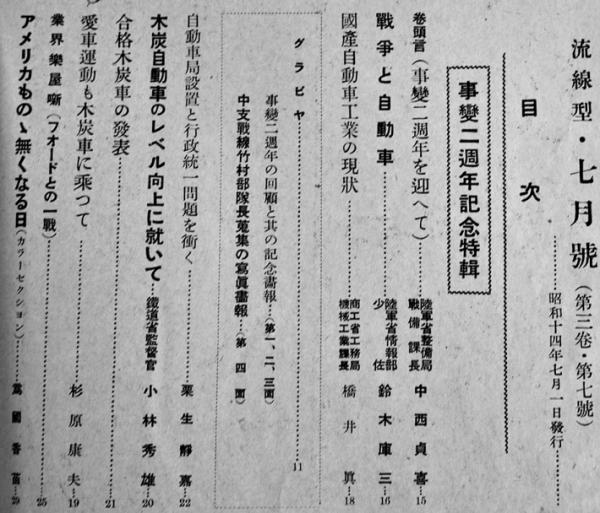 流線型・七月號(第三卷・第七號)
昭和十四年七月一日發行
目次
事變二週年記念特輯
卷頭言(事變二週年を迎へて)
陸軍省整備局
戰備課長
中西貞喜
15
戰爭と自動車
陸軍省情報部
少佐
鈴木庫三
16
國產自動車工業の現狀
商工省工務局
機械工業課長
橋井眞
18
グラビヤ
11
事變二週年の回顧と其の記念畫報(第一、二、三面)
中支戰線竹村部隊長蒐集の寫眞畫報(第四面)
自動車局設置と行政統一問題を衝く
栗生靜嘉
22
木炭自動車のレベル向上に就いて
鐵道省監督官
小林秀雄
20
合格木炭車の發表
21
愛車運動も木炭車に乘つて
杉原康夫
19
業界樂屋噺(フオードとの一戰)
25
アメリカものゝ無くなる日(カラーセクシヨン)
國香苗
29